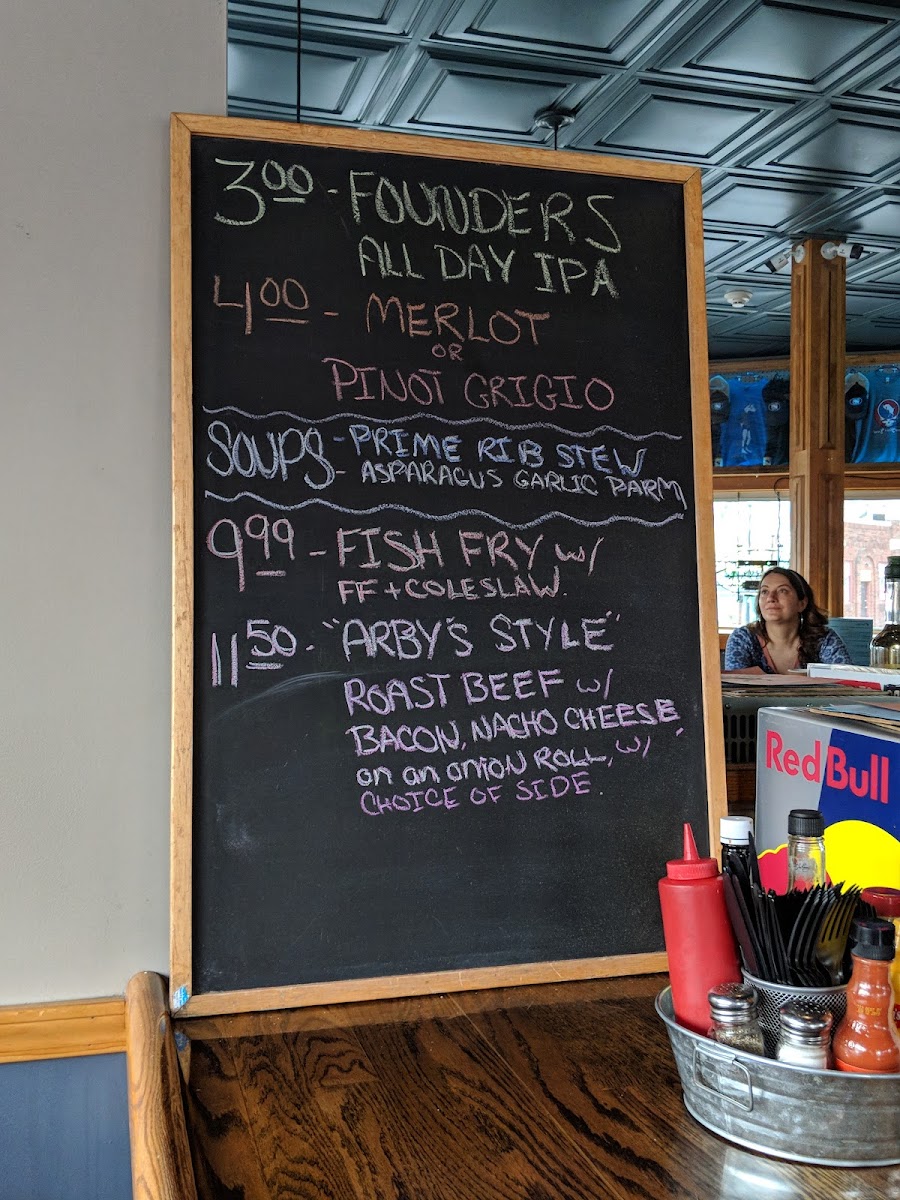 3.00 - FOUNDERS
ALL DAY IPA
4.00 - MERLOT
OR
PINOT GRIGIO
SOUPS - PRIME RIB STEW
- ASPARAGUS GARLIC PARM
9.99 - FISH FRY w/
FF + COLESLAW.
11.50 - "ARBY'S STYLE"
ROAST BEEF w/
BACON, NACHO CHEESE,
on an onion ROLL, w/
CHOICE OF SIDE.
Red Bull